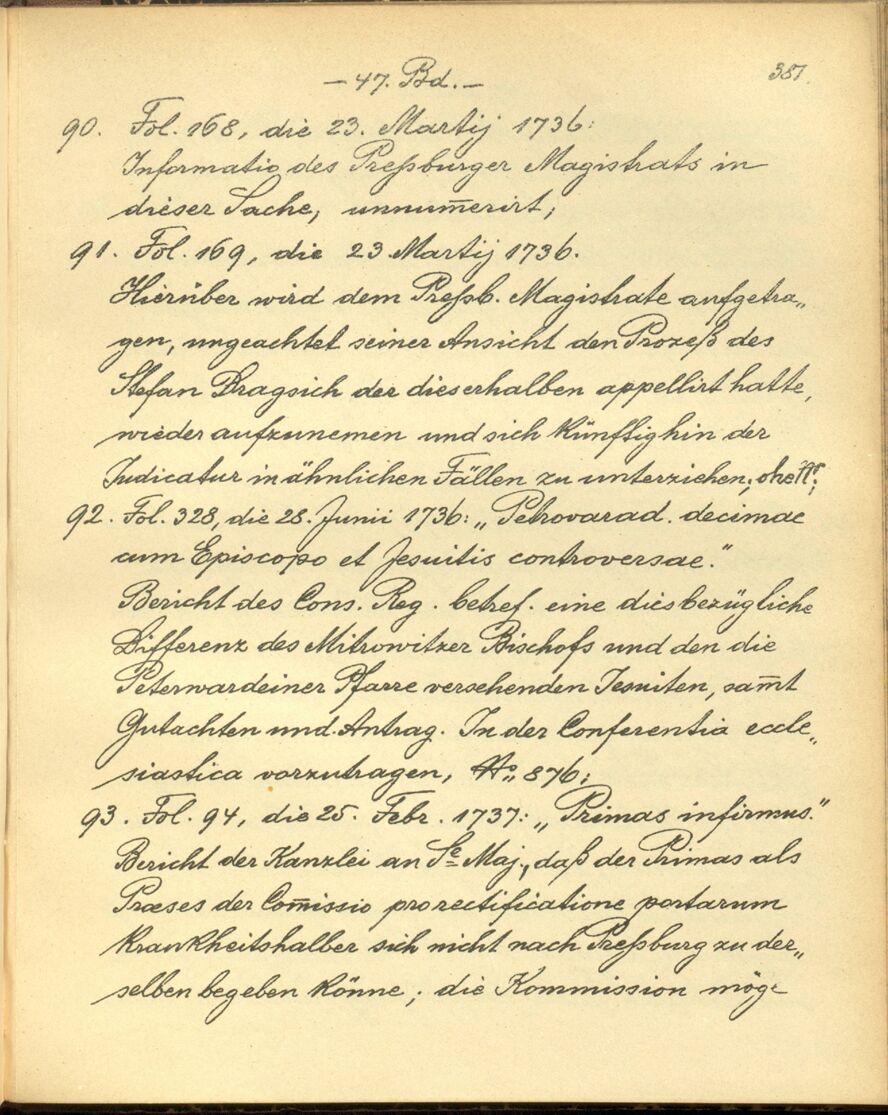 — 47. Bd. —
387.
90. Fol. 168, die 23. Martij 1736:
Informatio des Preßburger Magistrats in
dieser Sache, unnum̅erirt;
91. Fol. 169, die 23 Martij 1736.
Hierüber wird dem Preßb. Magistrate aufgetra„
gen, ungeachtet seiner Ansicht den Prozeß des
Stefan Dragsich der dieserhalben appellirt hatte,
wieder aufzunemen und sich künftighin der
Judicatur in ähnlichen Fällen zu unterziehen; ohe Nr;
92. Fol. 328, die 28. Junii 1736: „Petrovarad. decimae
cum Episcopo et Jesuitis controversae.“
Bericht des Cons. Reg. betref. eine diesbezügliche
Differenz des Mitrowitzer Bischofs und den die
Peterwardeiner Pfarre versehenden Jesuiten, sam̅t
Gutachten und Antrag. In der Conferentia eccle„
siastica vorzutragen, No„ 876;
93. Fol. 94, die 25. Febr. 1737: „Primas infirmus.“
Bericht der Kanzlei an Se Maj., daß der Primas als
Praeses der Com̅issio pro rectificatione portarum
krankheitshalber sich nicht nach Preßburg zu der„
selben begeben könne; die Kommission möge